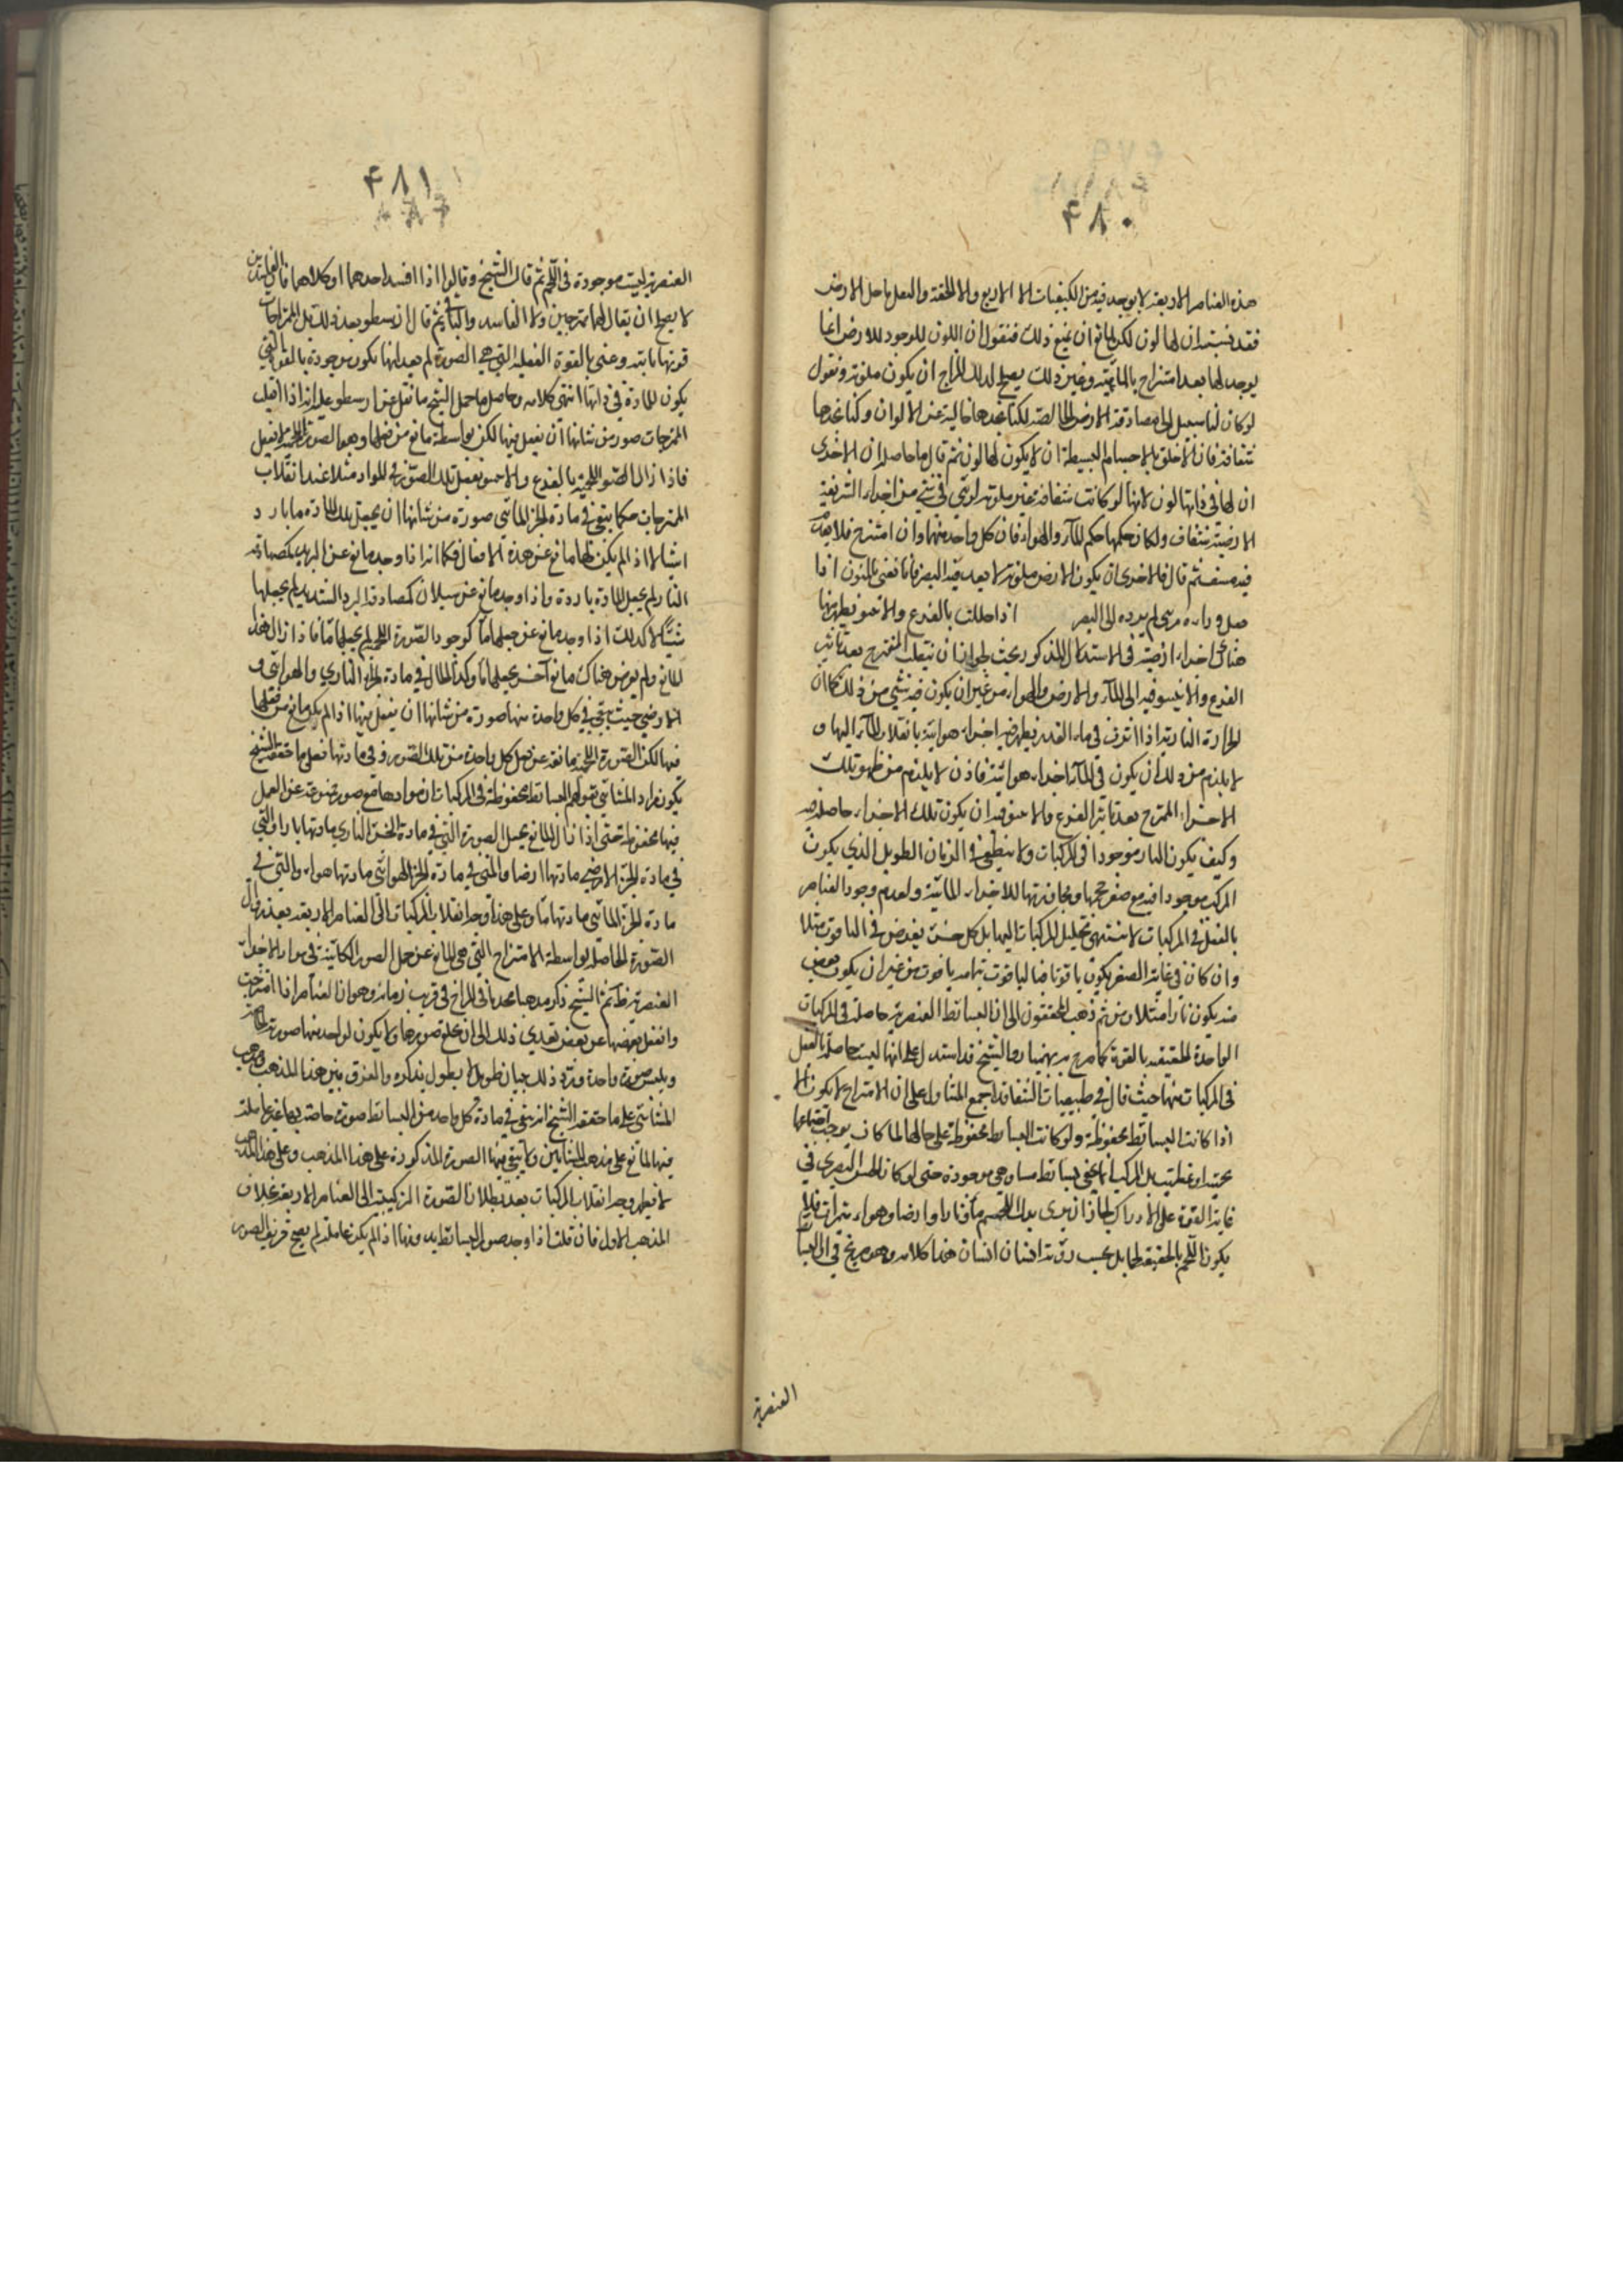 ٤٨٠
هذه العناصر الاربعة لا يوجد فيه من الكيفيات الا الاربع والا الخفة والثقل ما خلا الارض
فقد نسبت ان لها لون لكن لمانع ان يمنع ذلك فنقول ان اللون الموجود للارض انما
يوجد لها بعد امتزاج بالمائية وغير ذلك يصلح لذلك المزاج ان يكون ملونة ونقول
لو كان لنا سبيل الى مصادفة الارض الخالصة لكنا نجدها خالية عن الالوان وكنا نجدها
شفافة فان الاخلق بالاجسام البسيطة ان لا يكون لها لون ثم قال ما حاصله ان الاخرى
ان لها في ذاتها لون لانها لو كانت شفافة غير ملونة لرئي في شيء من اجزاء التربة
الارضية شفاف ولكان حكمها حكم الماء والهواء فان كل واحد منهما وان امتزج فلا يعدم
فيه مشف ثم قال فالاحرى ان يكون الارض ملونة لا يعد فيه البصر فانا نعني باللون اذا
لم يرده الى البصر اذا حللت بالقرع والانبيق يظهر منها
هناك اجزاء ارضية في الاستدلال المذكور بحث لجواز ان ينقلب الممتزج بعد تاثير
القرع والانبيق فيه الى الماء والارض والهواء من غير ان يكون فيه شيء من ذلك كما ان
الحرارة النارية اذا اثرت في ماء القدر يظهر فيه اجزاء هوائية بانقلاب الماء اليها و
لا يلزم من ذلك ان يكون في الماء اجزاء هوائية فاذن لا يلزم من ظهور تلك
الاجزاء الممتزج بعد تاثير القرع والانبيق فيه ان يكون تلك الاجزاء حاصلة فيه
وكيف يكون النار موجودا في المركبات ولا ينطفي في الزمان الطويل الذي يكون
المركب موجودا فيه مع صغر حجمها ومجاورتها للاجزاء المائية ولعدم وجود العناصر
بالفعل في المركبات لا ينتهي تحليل المركبات اليها بل كل جزء يفرض في الياقوت مثلا
وان كان في غاية الصغر يكون ياقوتا فالياقوت بتمامه ياقوت من غير ان يكون بعض
منه يكون نارا مثلا ومن ثم ذهب المحققون الى ان البسائط العنصرية حاصلة في المركبات
الواحدة الحقيقية بالقوة كما صرح به بهمنيار والشيخ قد استدل على انها ليست حاصلة بالفعل
في المركبات منها حيث قال في طبيعيات الشفا قد اجمع المشاؤن على ان الامتزاج لا يكون الا
اذا كانت البسائط محفوظة ولو كانت البسائط محفوظة على حالها لما كان يوجب اجتماعها
بسائط موجودة حتى لو كان الحس البصري في
غاية القوة على الادراك لجاز ان يرى بدل اللحم ماء ونارا وارضا وهواء متميزات فلا
يكون اللحم بالحقيقة لحما بل بحسب رؤية انسان انسان هذا كلامه وهو صريح في ان البسائط
العنصرية
٤٨١
العنصرية ليست موجودة في اللحم ثم قال الشيخ وقالوا اذا فسد احدهما او كلاهما
لا يصلح ان يقال لهما ممتزجين ولا الفاسد والباقي ثم قال ارسطو بعد ذلك بل الممتزجات
قوتها ثابتة وعنى بالقوة الفعلية التي هي الصورة لم يعد انها يكون موجودة بالقوة التي
يكون للمادة في ذاتها انتهى كلامه وحاصل ما حمل الشيخ ما نقل عن ارسطو عليه انه اذا
الممتزجات صور من شانها ان يفعل فيها لكن بواسطة مانع من فعلها وهو الصورة اللحمية لا يفعل
فاذا زال الصورة اللحمية بالقرع والانبيق يفعل تلك الصور في المواد مثلا عند انقلاب
الممتزجات حكما يبقى في مادة الجزء المائي صورة من شانها ان يجعل تلك المادة ماء بارد
الا اذا لم يكن لها مانع عن هذه الافعال فكما انه اذا وجد مانع عن التبريد كمصادفة
النار لم يجعل المادة باردة واذا وجد مانع عن سيلان كمصادفة البرد الشديد لم يجعلها
كذلك اذا وجد مانع عن جعلها ماء كوجود الصورة اللحمية لم يجعلها ماء فاذا زال هذا
المانع ولم يعرض هناك مانع آخر يجعلها ماء وكذا الحال في مادة الجزء الناري والهوائي و
الارضي حيث يبقى في كل واحدة منها صورة من شانها ان يفعل فيها اذا لم يكن مانع من فعلها
فيها لكن الصورة اللحمية مانعة عن فعل كل واحدة من تلك الصور في مادتها فعلى ما حققه الشيخ
يكون مراد المشائين بقولهم البسائط محفوظة في المركبات ان موادها مع صور ممنوعة عن العمل
فيها محفوظة حتى اذا زال المانع يجعل الصورة التي في مادة الجزء الناري مادتها نارا والتي
في مادة الجزء الارضي مادتها ارضا والتي في مادة الجزء الهوائي مادتها هواء والتي في
مادة الجزء المائي مادتها ماء وعلى هذا وجه انقلاب المركبات الى العناصر الاربعة بعد زوال
الصورة الحاصلة بواسطة الامتزاج التي هي المانع عن عمل الصور الكائنة في مواد الاجزاء
العنصرية ظاهر ثم الشيخ ذكر مذهبا محدثا في المزاج في قريب زمانه وهو ان العناصر اذا امتزجت
وانفعل بعضها عن بعض تعدى ذلك الى ان تخلع صورها ولا يكون لواحد منها صورته الخاصة
ويلبس صورة واحدة ورد ذلك ببيان طويل لا يطول بذكره والفرق بين هذا المذهب ومذهب
المشائين على ما حققه الشيخ انه يبقى في مادة كل واحد من البسائط صورة خاصة بها غير عاملة
فيها لمانع على مذهب المشائين ولا يبقى فيها الصورة المذكورة على هذا المذهب وعلى هذا المذهب
لا يظهر وجه انقلاب المركبات بعد بطلان الصورة التركيبية الى العناصر الاربعة بخلاف
المذهب الاول فان قلت اذا وجد صور البسائط فيه اذا لم يكن عاملة لم يصح